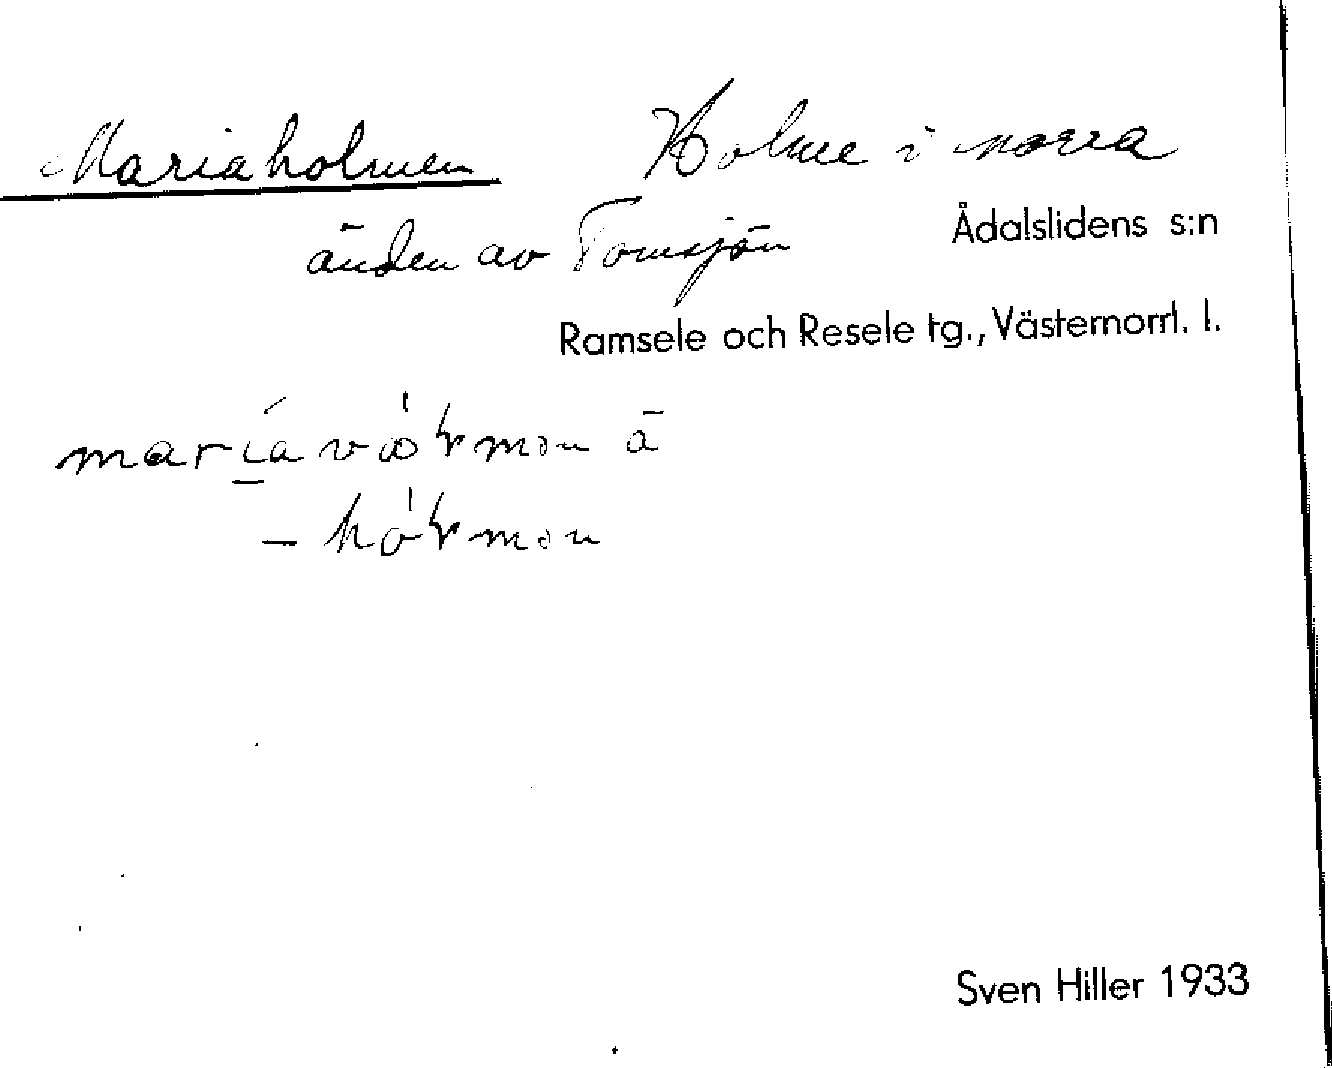 Mariaholmen Holme i norra
änden av Tomsjön Ådalslidens s:n
Ramsele och Resele tg., Västernorrl. l.
Sven Hiller 1933